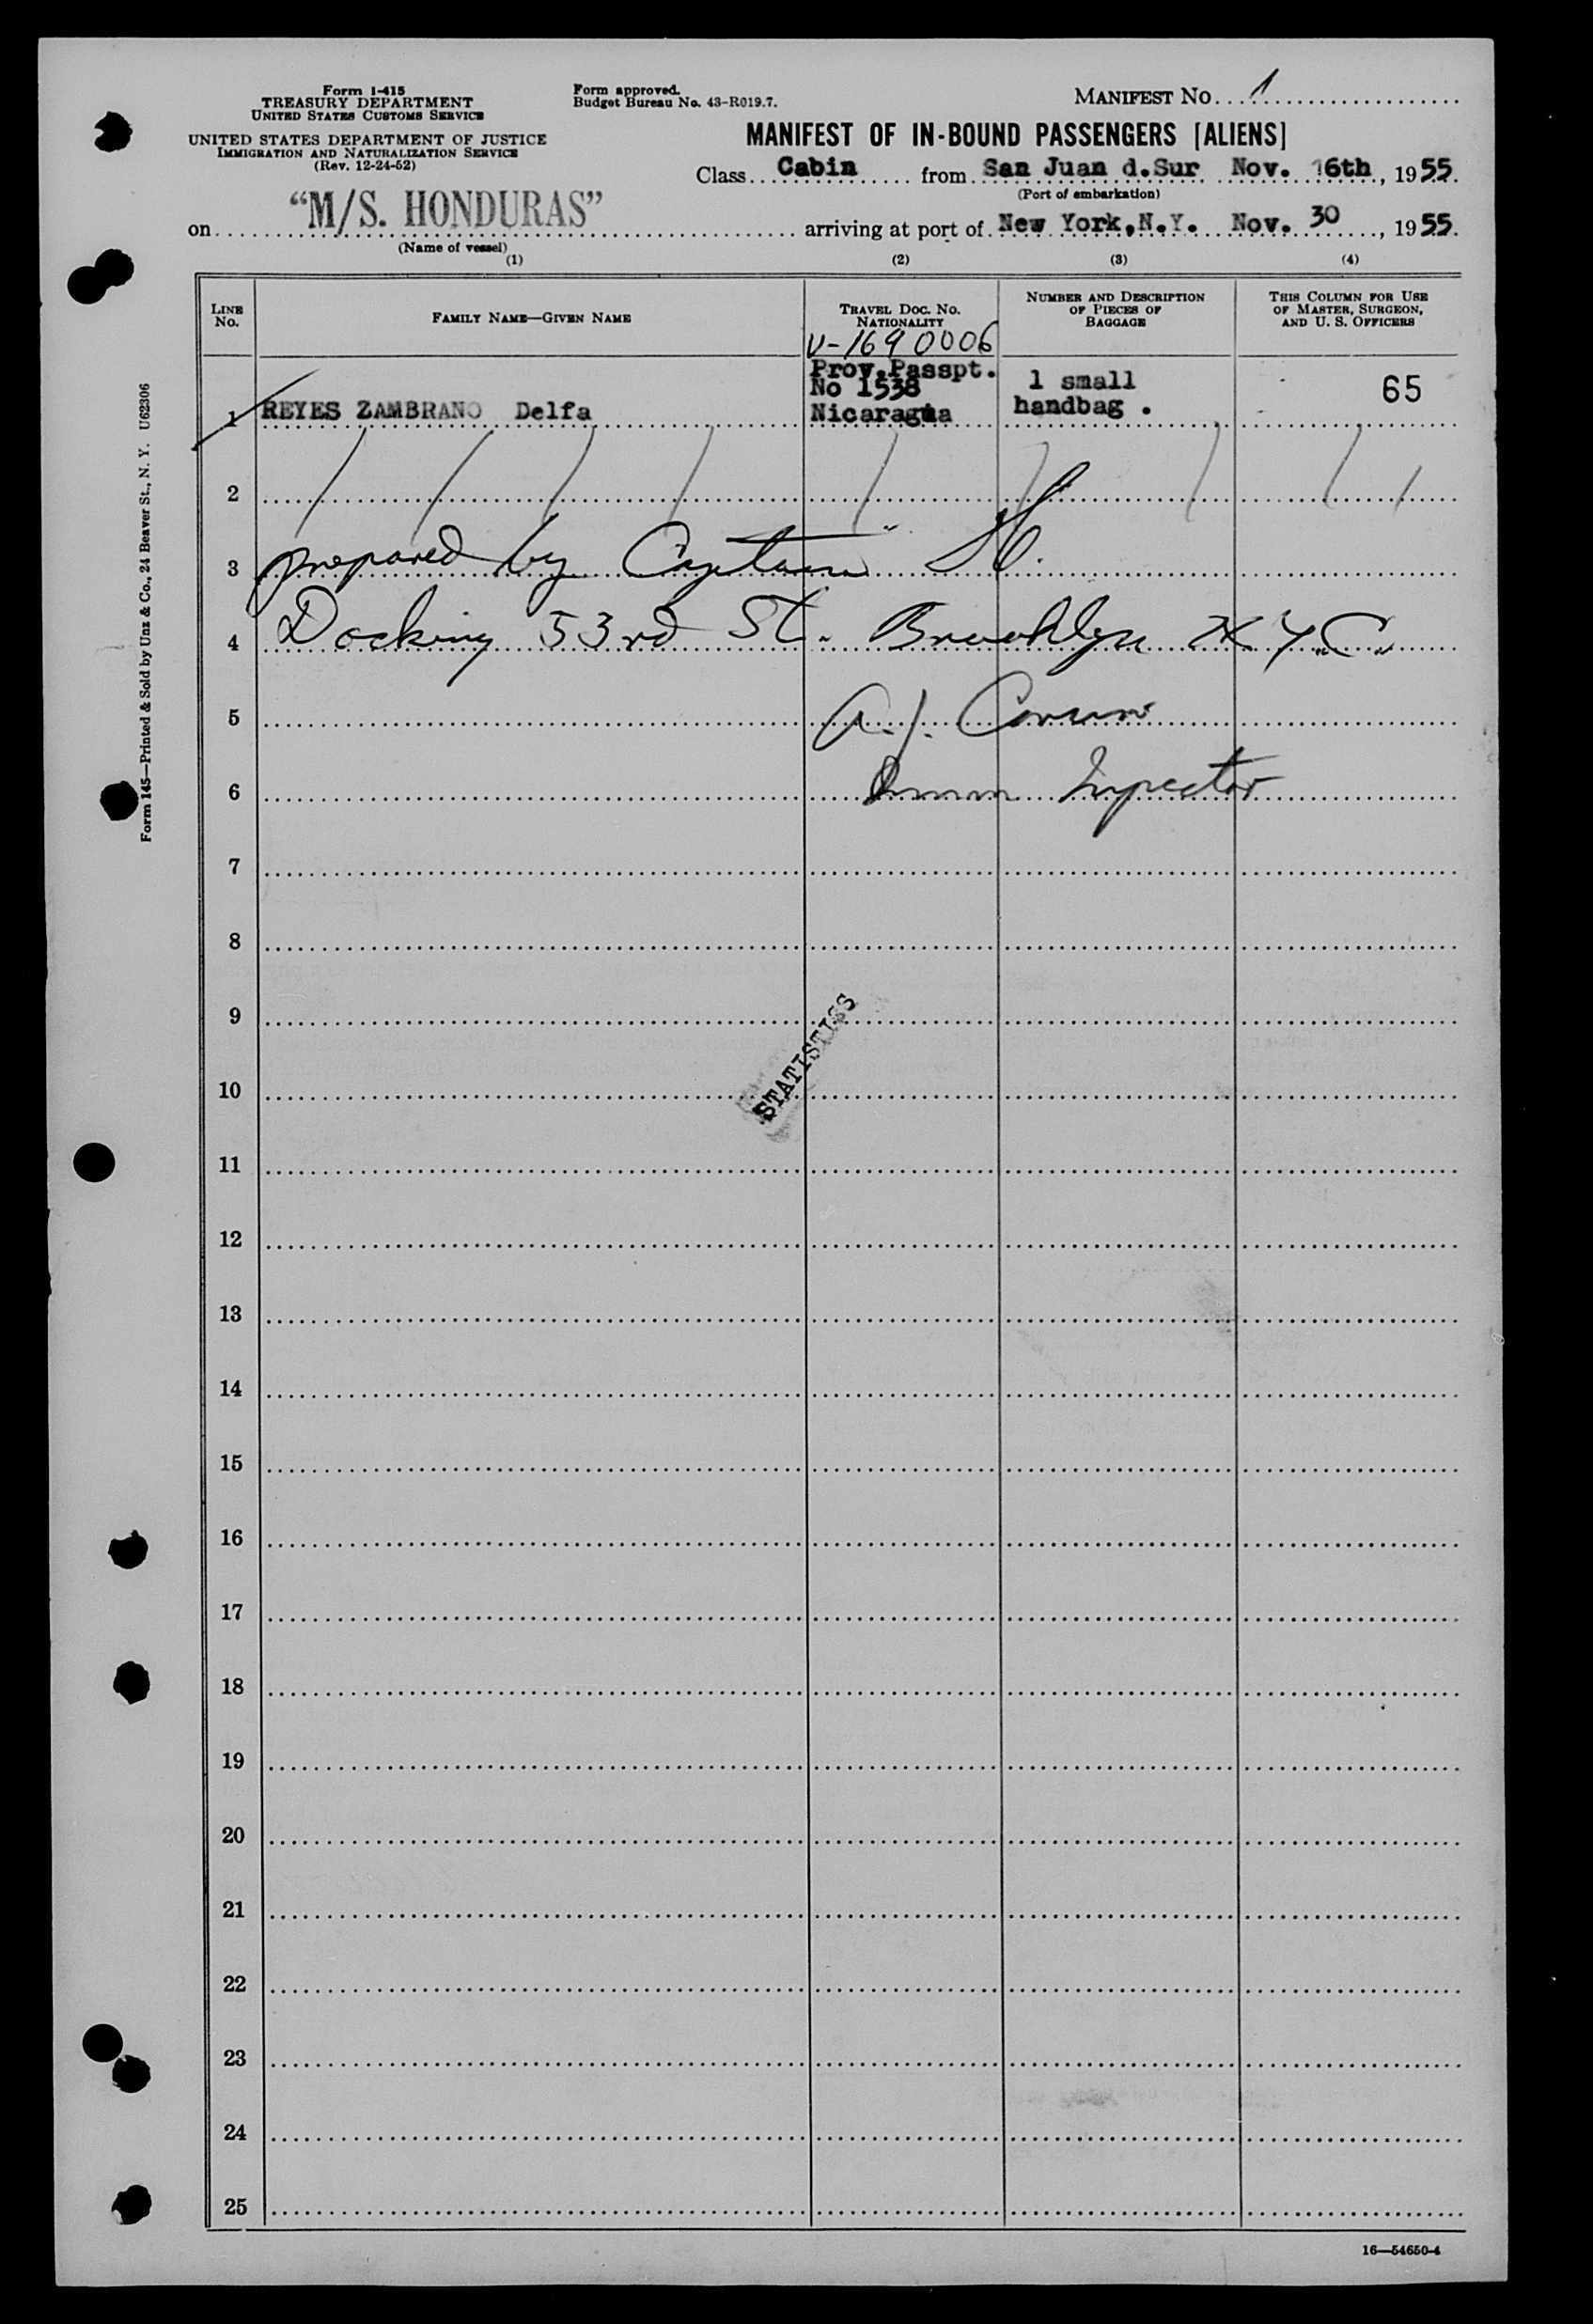 Form I-415
TREASURY DEPARTMENT
UNITED STATES CUSTOMS SERVICE
UNITED STATES DEPARTMENT OF JUSTICE
IMMIGRATION AND NATURALIZATION SERVICE
(Rev. 12-24-52)
Form approved.
Budget Bureau No. 43-R019.7.
MANIFEST NO. 1
MANIFEST OF IN-BOUND PASSENGERS [ALIENS]
Class Cabin from San Juan d.Sur Nov. 16th, 1955.
(Port of embarkation)
on "M/S. HONDURAS" arriving at port of New York,N.Y. Nov. 30, 1955.
(Name of vessel)
(1) (2) (3) (4)
LINE No.
FAMILY NAME—GIVEN NAME
TRAVEL DOC. NO. NATIONALITY
NUMBER AND DESCRIPTION OF PIECES OF BAGGAGE
THIS COLUMN FOR USE OF MASTER, SURGEON, AND U. S. OFFICERS
V-1690006
1 REYES ZAMBRANO Delfa
Prov.Passpt.
No 1538
Nicaragua
1 small
handbag .
65
2
3 prepared by Captain
4 Docking 53rd St. Brooklyn N.Y.C.
5 A.J.
6 Immn Inspector
7
8
9
STATISTICS
10
11
12
13
14
15
16
17
18
19
20
21
22
23
24
25
16—54650-4
Form 145—Printed & Sold by Unz & Co., 24 Beaver St., N. Y. U62306